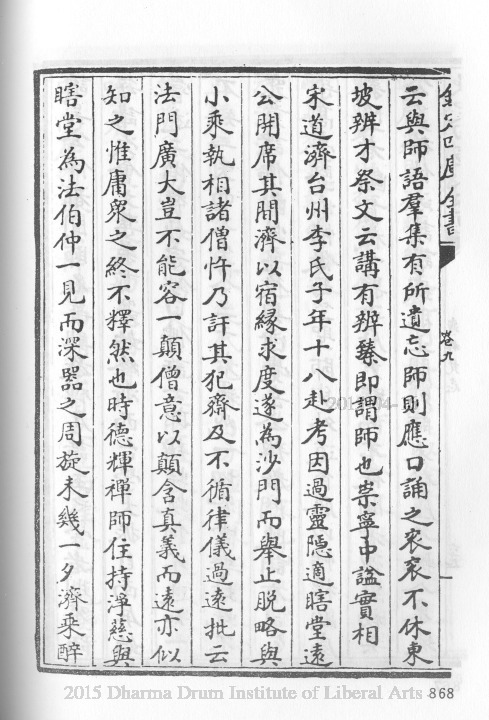 欽定四庫全書
卷九
云與師語羣集有所遺忘師則應口誦之衮衮不休東
坡辨才祭文云講有辨臻即謂師也崇寧中諡實相
宋道濟台州李氏子年十八赴考因過靈隱適瞎堂遠
公開席其間濟以宿緣求度遂為沙門而舉止脱略與
小乘執相諸僧忤乃訐其犯齋及不循律儀過遠批云
法門廣大豈不能容一顛僧意以顛含真義而遠亦似
知之惟庸衆之終不釋然也時德輝禪師住持淨慈與
瞎堂為法伯仲一見而深器之周旋未幾一夕濟乘醉
2015 Dharma Drum Institute of Liberal Arts
868